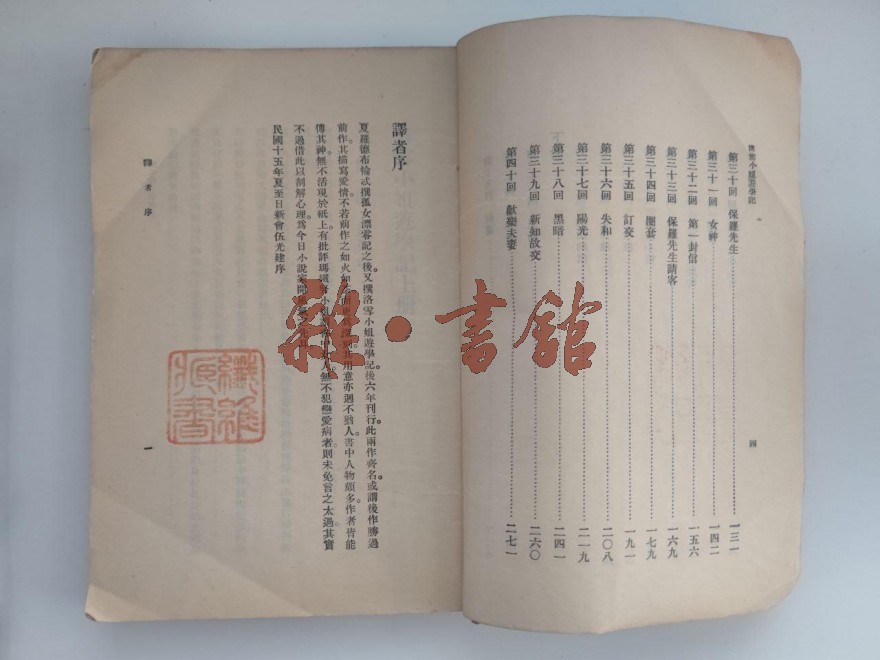 洛雪小姐遊學記
第三十回 保羅先生 一三一
第三十一回 女神 一四二
第三十二回 第一封信 一五六
第三十三回 保羅先生請客 一六九
第三十四回 圈套 一七九
第三十五回 訂交 一九一
第三十六回 失和 二〇八
第三十七回 陽光 二一九
第三十八回 黑暗 二四一
第三十九回 新知故交 二六〇
第四十回 歡樂夫妻 二七一
四
譯者序
夏羅德布倫忒撰孤女漂零記之後又撰洛雪小姐遊學記後六年刊行此兩作齊名或謂後作勝過
前作其描寫愛情不若前作之如火如 用意亦迥不猶人書中人物頗多作者皆能
傳其神無不活現於紙上有批評 小姐 人無不犯戀愛病者則未免言之太過其實
不過借此以剖解心理為今日小說家開
民國十五年夏至日新會伍光建序
譯者序
一
雜·書館